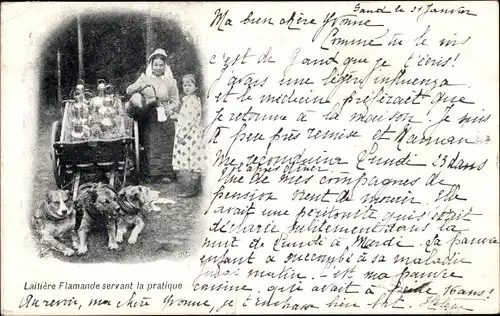 Gand le 31 Janvier
Ma bien chère Yvonne,
Comme tu le vis
c'est de Gand que je t'écris!
J'avais une légère influenza
et le médecin préférait que
je retourne à la maison. Je suis
à peu près remise et Maman
me reconduira Lundi 23 dans
l'après dîner
Une de mes compagnes de
pension vient de mourir. Elle
avait une péritonite qui s'était
déclarée subitement dans la
nuit de Lundi à Mardi. La pauvre
enfant a succombé à sa maladie
matin. C'est ma pauvre
cousine qui avait à peine 16 ans!
Laitière Flamande servant la pratique
Au revoir, ma chère Yvonne, je t'embrasse bien fort.